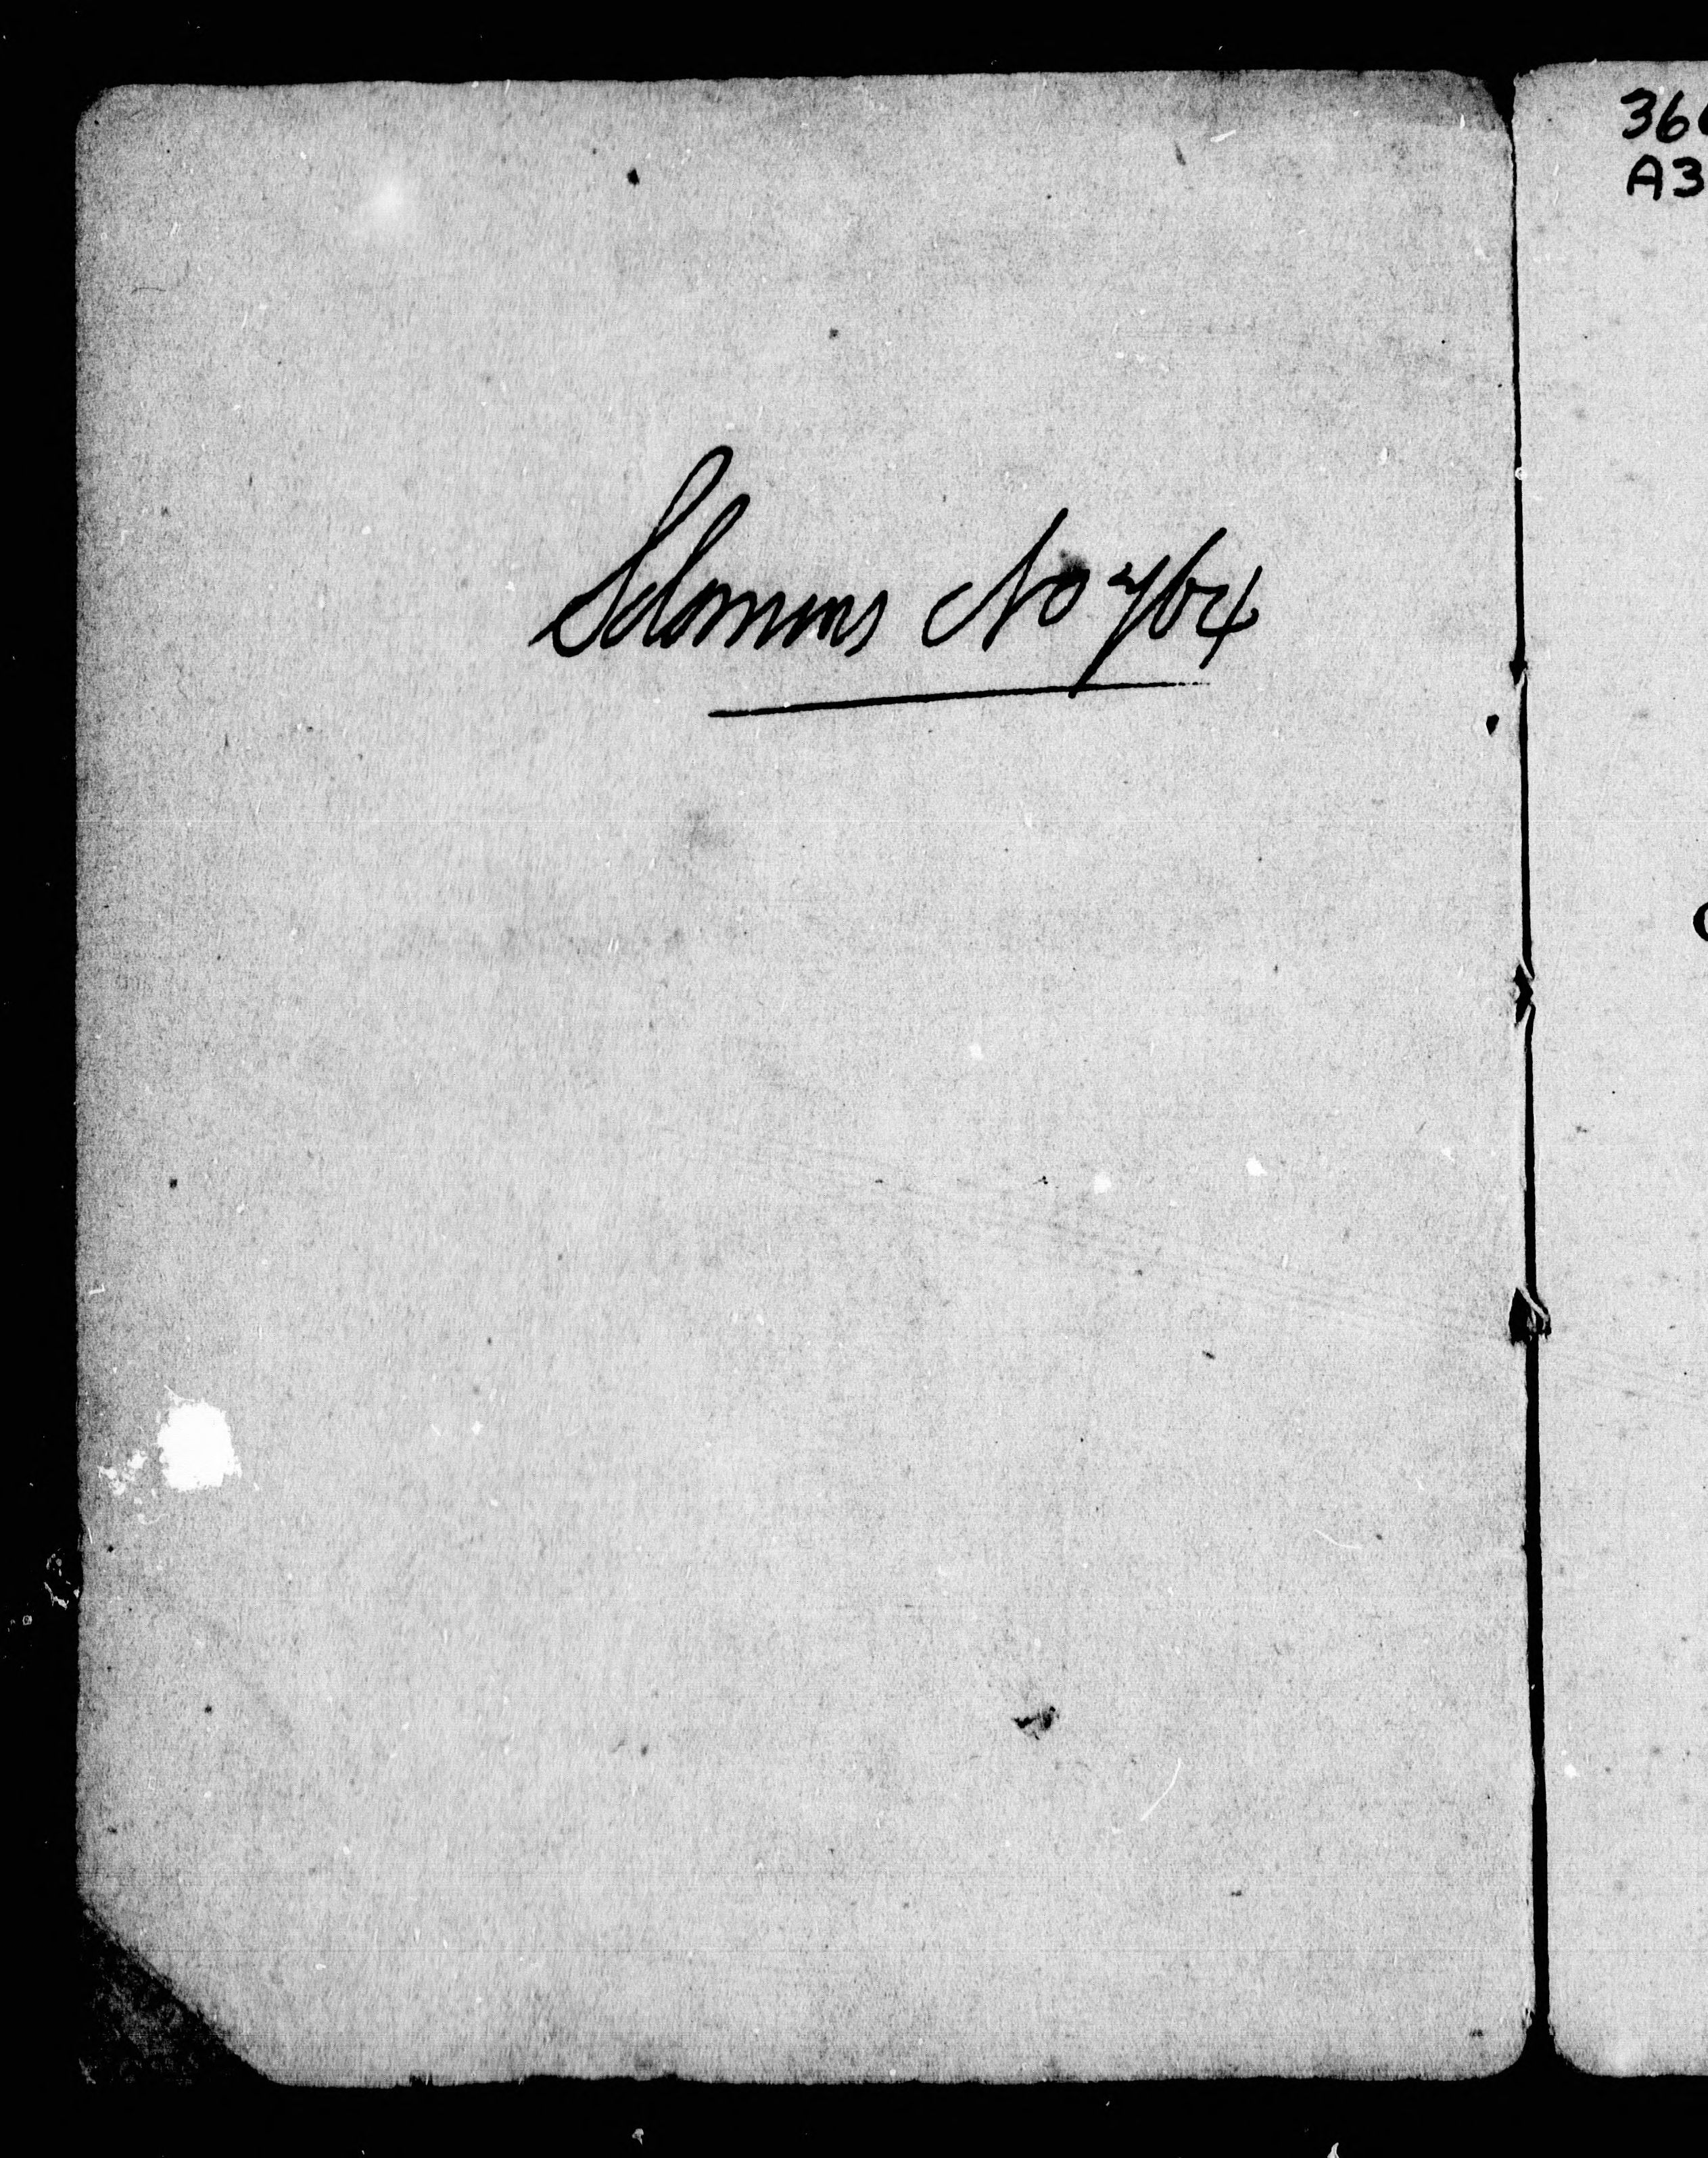 Solomons No 764
36
A3